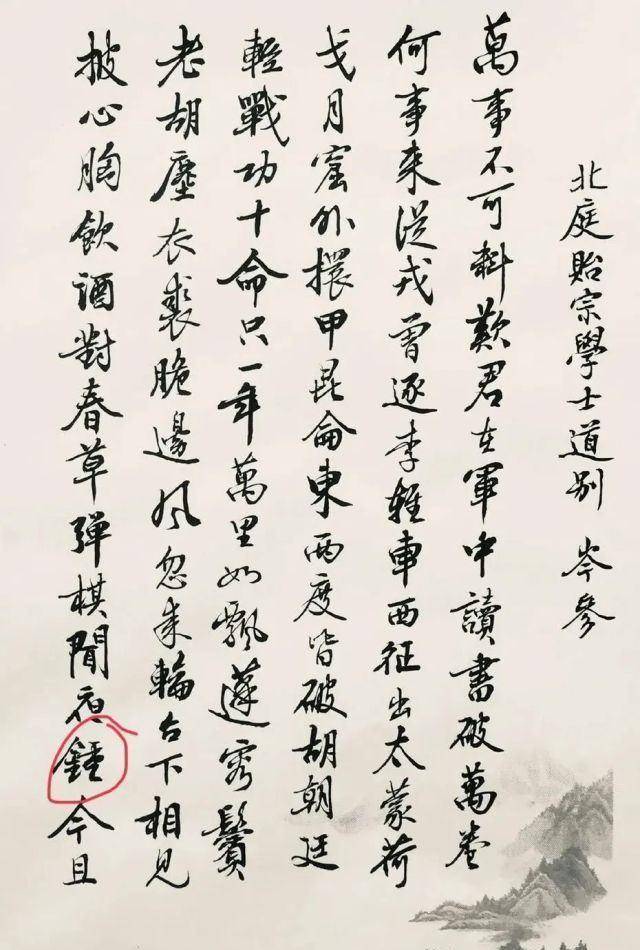 北庭貽宗學士道別 岑參
萬事不可料歎君在軍中讀書破萬卷
何事來從戎曾逐李輕車西征出太蒙荷
戈月窟外擐甲昆侖東兩度皆破胡朝廷
輕戰功十命只一年萬里如飄蓬容鬢
老胡塵衣裘脆邊風忽來輪台下相見
披心胸飲酒對春草彈棋聞夜鍾今且